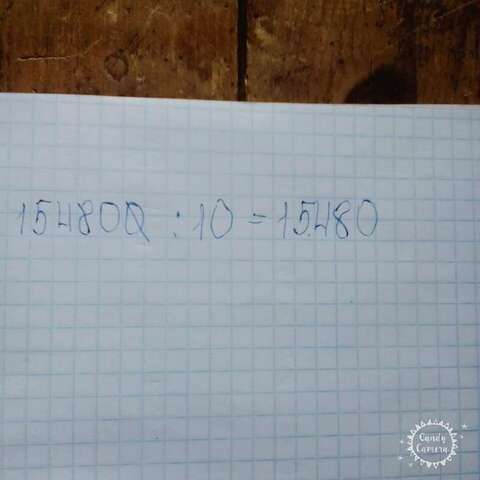 154800 : 10 = 15480
Candy
Camera